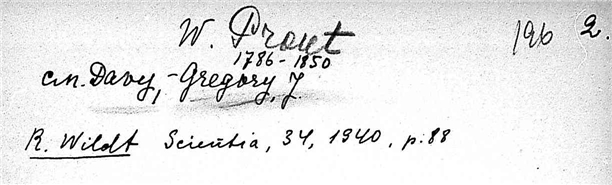 W. Prout 196 2.
1786-1850
см. Davy, - Gregory, J.
R. Wildt Scientia, 34, 1940, p. 88